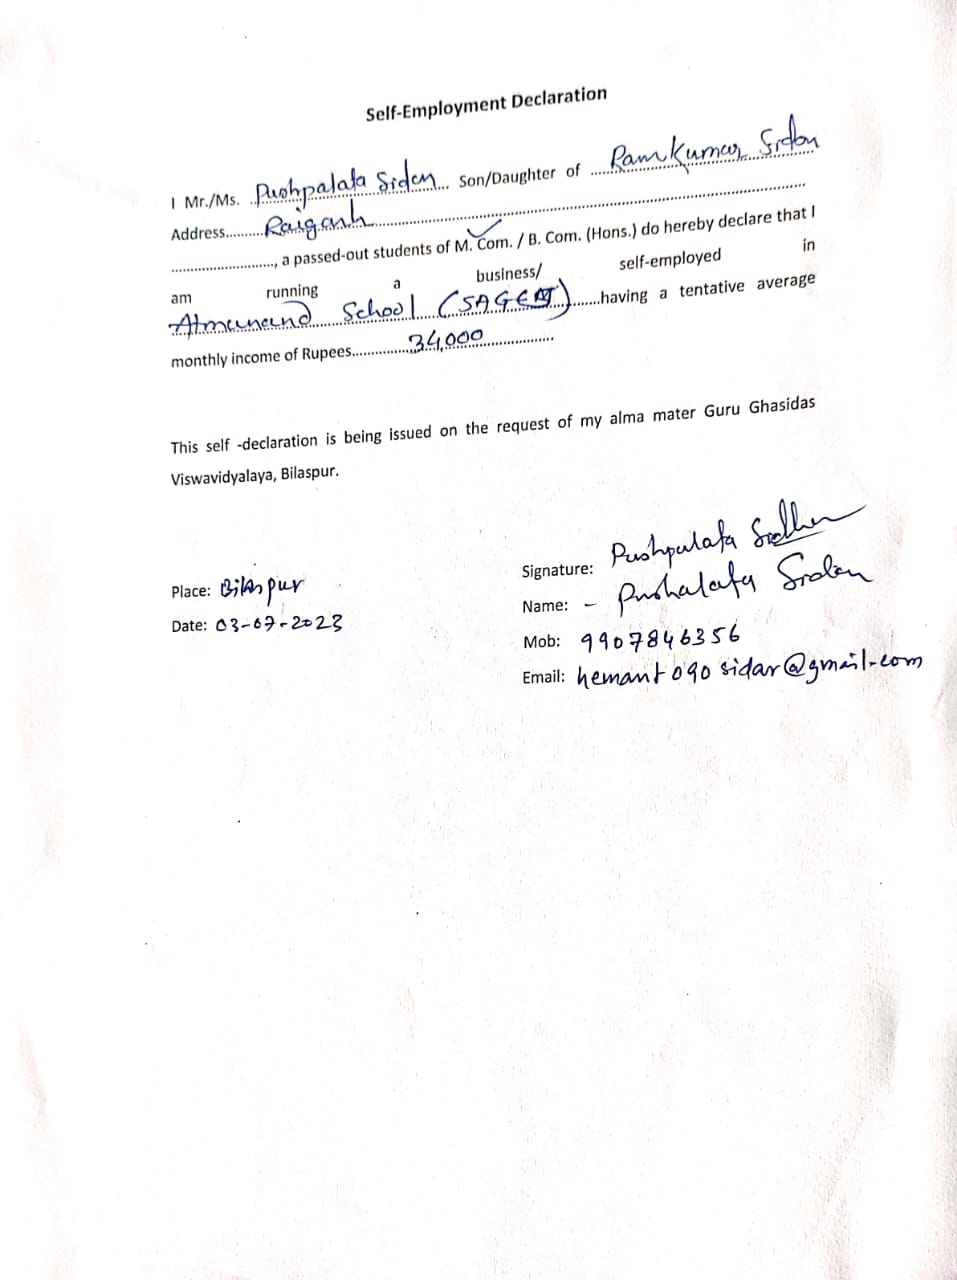 Self-Employment Declaration
I Mr./Ms. ..Pushpalata Sidar... Son/Daughter of .....Ramkumar Sidar
Address..........Raigarh..........
............................, a passed-out students of M. Com. / B. Com. (Hons.) do hereby declare that I
am running a business/ self-employed in
Atmanand School (SAGES).......having a tentative average
monthly income of Rupees...............34,000...............
This self -declaration is being issued on the request of my alma mater Guru Ghasidas
Viswavidyalaya, Bilaspur.
Place: Bilaspur
Date: 03-07-2023
Signature: Pushpalata
Name: - Pushalata Sidar
Mob: 9907846356
Email: hemant090sidar@gmail.com